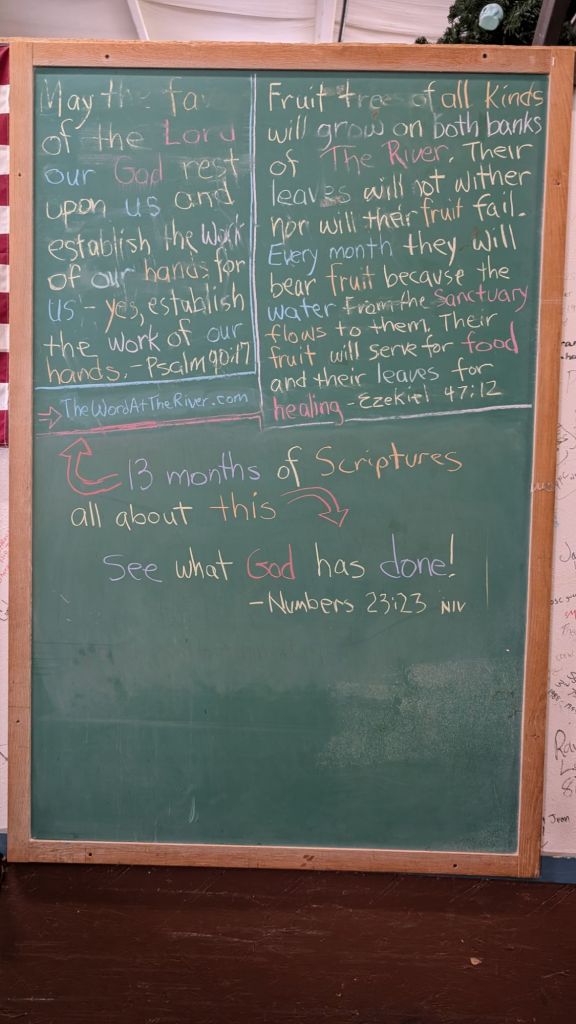 May the fa
of the Lord
our God rest
upon us and
establish the work
of our hands for
us - yes, establish
the work of our
hands. - Psalm 90:17
TheWordAtTheRiver.com
Fruit trees of all kinds
will grow on both banks
of The River. Their
leaves will not wither
nor will their fruit fail.
Every month they will
bear fruit because the
water from the Sanctuary
flows to them. Their
fruit will serve for food
and their leaves for
healing - Ezekiel 47:12
13 months of Scriptures
all about this
See what God has done!
- Numbers 23:23 NIV